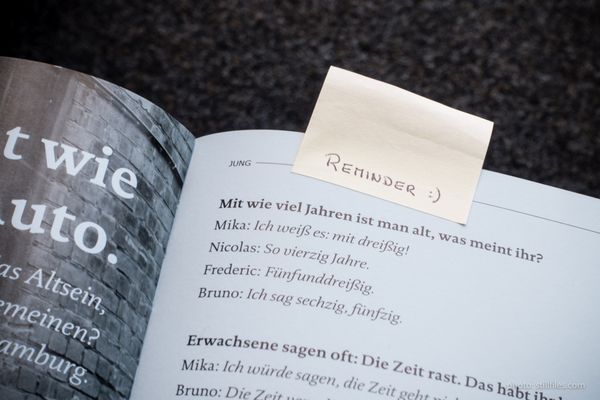 t wie
Auto.
das Altsein,
gemeinen?
Hamburg.
JUNG
REMINDER :)
Mit wie viel Jahren ist man alt, was meint ihr?
Mika: Ich weiß es: mit dreißig!
Nicolas: So vierzig Jahre.
Frederic: Fünfunddreißig.
Bruno: Ich sag sechzig, fünfzig.
Erwachsene sagen oft: Die Zeit rast. Das habt ihr
Mika: Ich würde sagen, die Zeit geht
Bruno: Die Zeit
photo: stillfiles.com